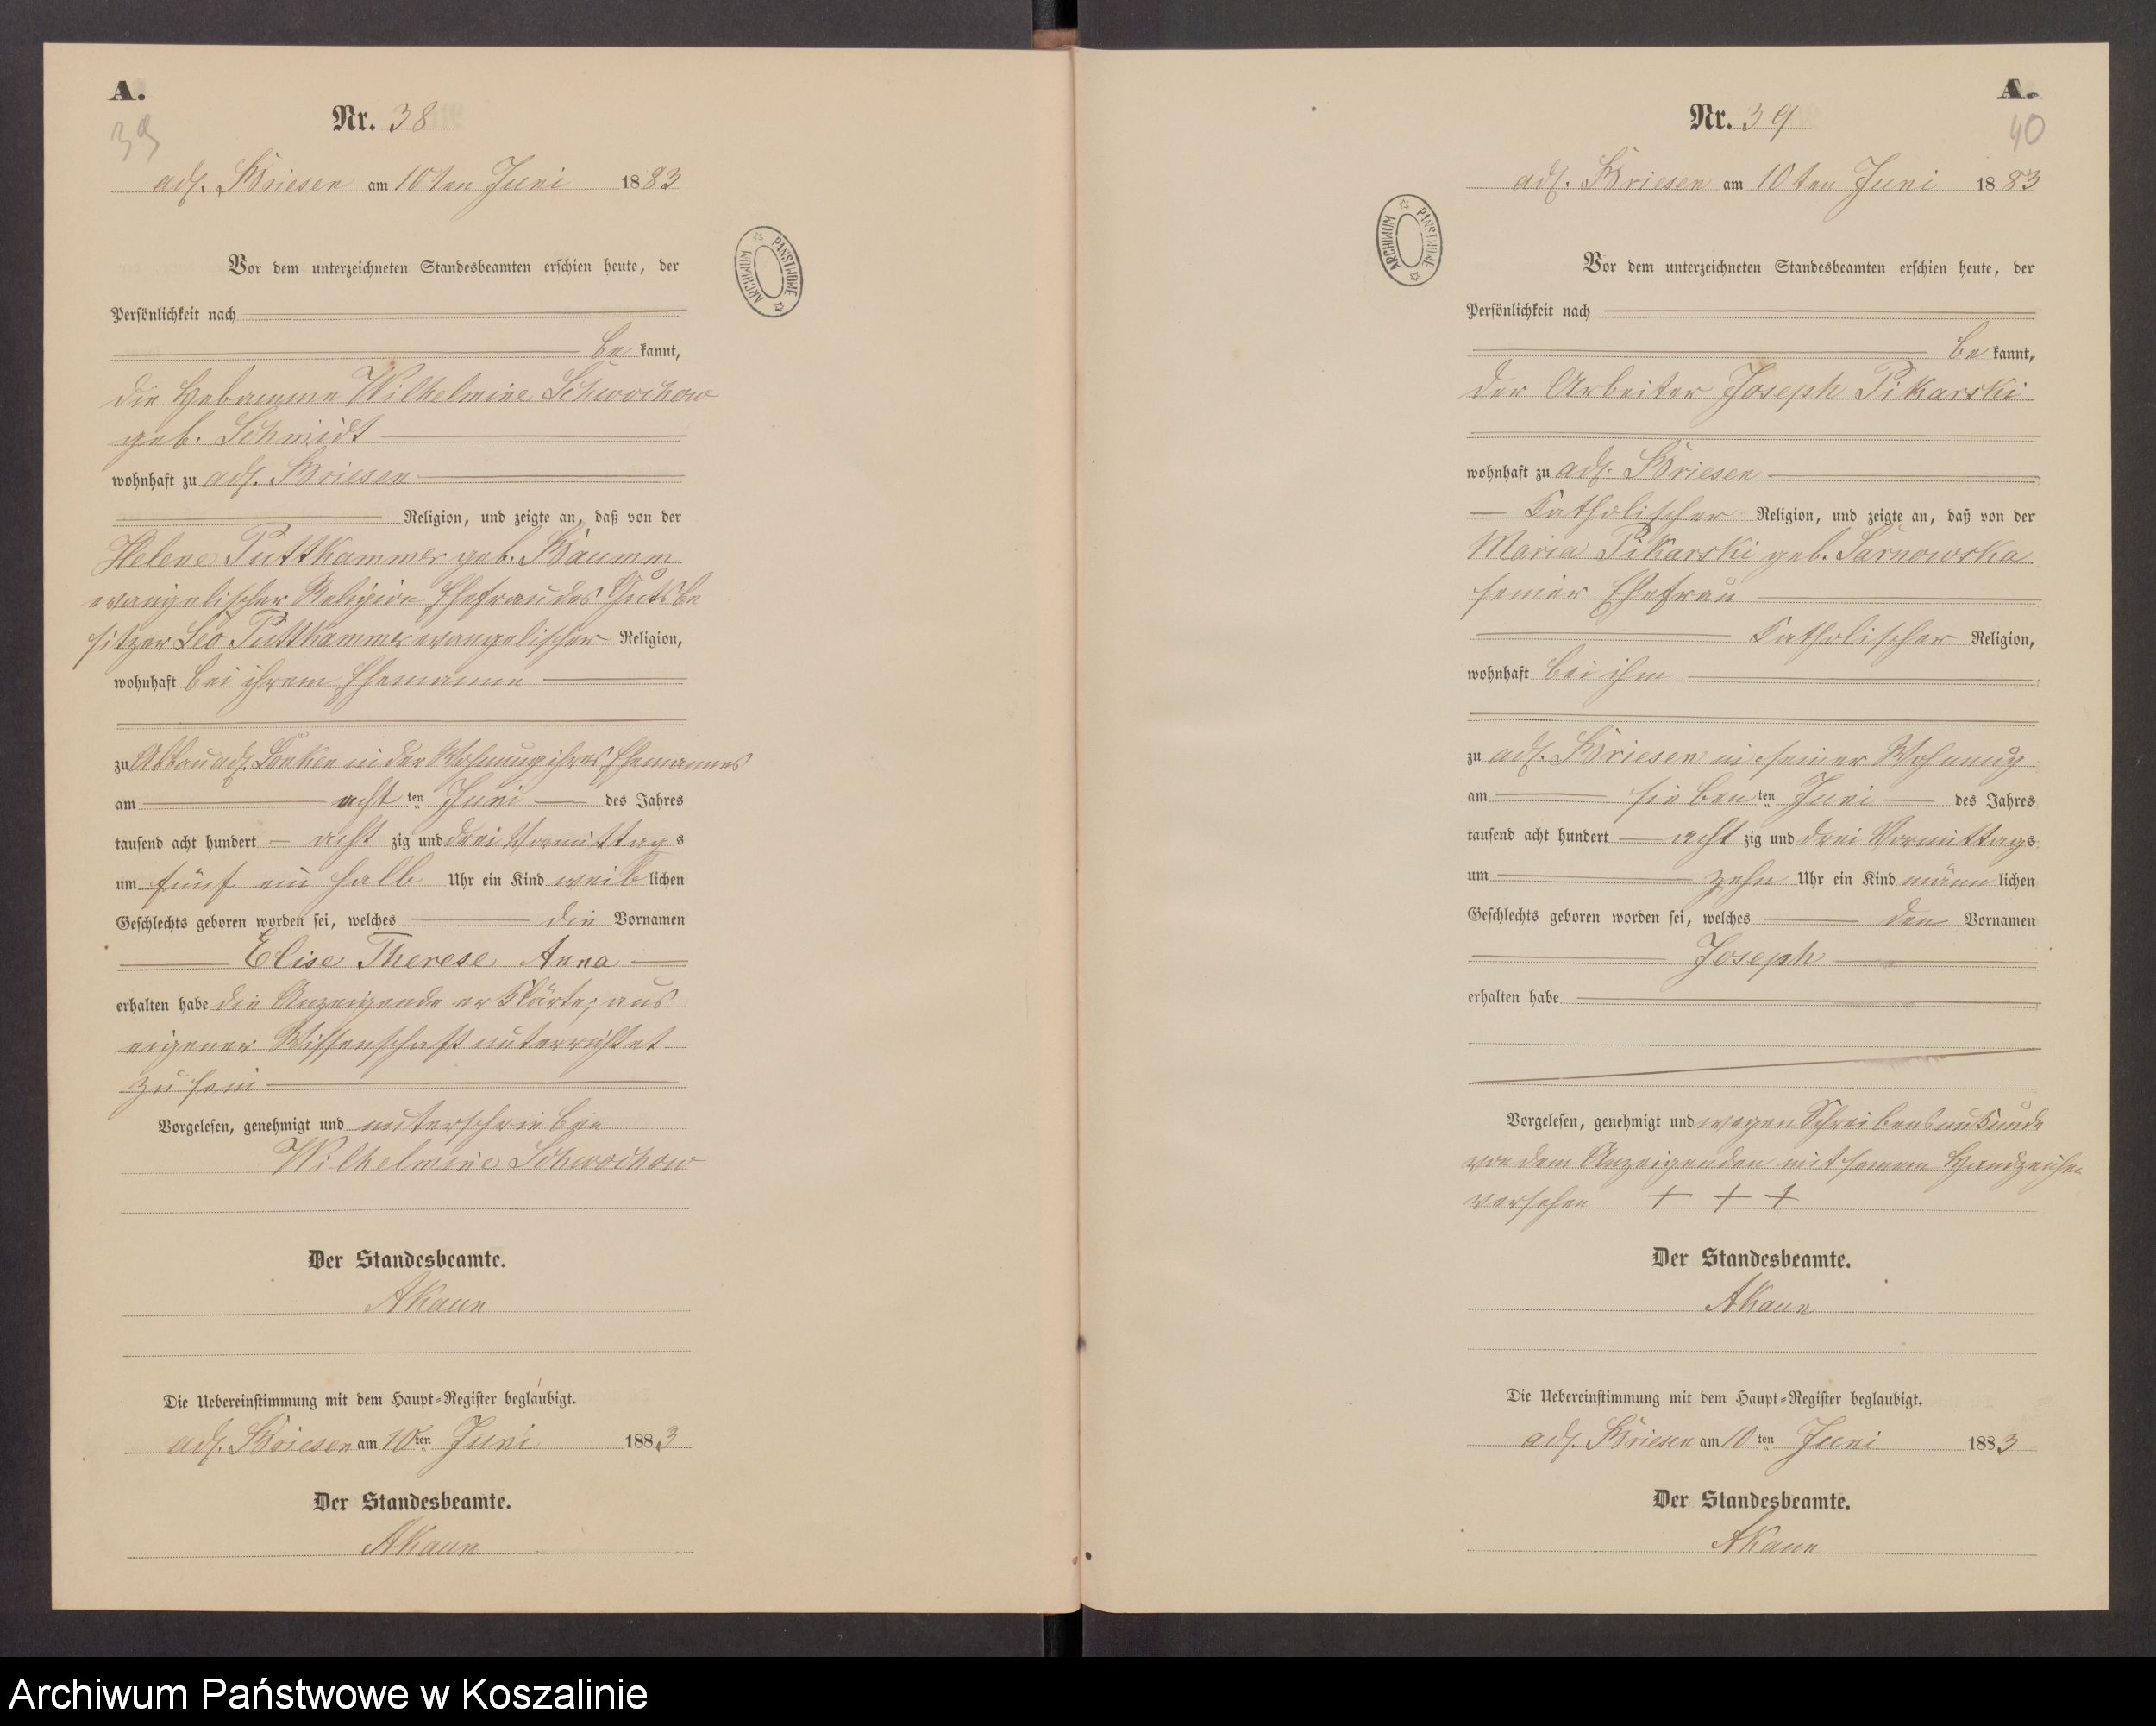 A.
39
Nr. 38
adl. Briesen am 10ten Juni 1883
Vor dem unterzeichneten Standesbeamten erschien heute, der
Persönlichkeit nach
be kannt,
die Hebamme Wilhelmine Schwochow
geb. Schmidt
wohnhaft zu adl. Briesen
Religion, und zeigte an, daß von der
Helene Puttkammer geb. Baumm
evangelischer Religion Ehefrau des Gutsbe
sitzer Leo Puttkammer evangelischer Religion,
wohnhaft bei ihrem Ehemanne
zu Abbau adl. in der Wohnung ihres Ehemannes
am acht ten Juni des Jahres
tausend acht hundert acht zig und drei Vormittags
um fünf ein halb Uhr ein Kind weib lichen
Geschlechts geboren worden sei, welches die Vornamen
Elise Therese Anna
erhalten habe die Anzeigende erklärte, aus
eigener Wissenschaft unterrichtet
zu sein
Vorgelesen, genehmigt und unterschrieben
Wilhelmine Schwochow
Der Standesbeamte.
AKaun
Die Uebereinstimmung mit dem Haupt-Register beglaubigt.
adl. Briesen am 10ten Juni 1883
Der Standesbeamte.
AKaun
ARCHIWUM PAŃSTWOWE
A.
40
Nr. 39
adl. Briesen am 10ten Juni 1883
Vor dem unterzeichneten Standesbeamten erschien heute, der
Persönlichkeit nach
be kannt,
der Arbeiter Joseph Pikarski
wohnhaft zu adl. Briesen
Katholischer Religion, und zeigte an, daß von der
Maria Pikarski geb. Sarnowska
seiner Ehefrau
Katholischer Religion,
wohnhaft bei ihm
zu adl. Briesen in seiner Wohnung
am sieben ten Juni des Jahres
tausend acht hundert acht zig und drei Vormittags
um zehn Uhr ein Kind männ lichen
Geschlechts geboren worden sei, welches den Vornamen
Joseph
erhalten habe
Vorgelesen, genehmigt und wegen Schreibensunkunde
von dem Anzeigenden mit seinem Handzeichen
versehen + + +
Der Standesbeamte.
AKaun
Die Uebereinstimmung mit dem Haupt-Register beglaubigt.
adl. Briesen am 10ten Juni 1883
Der Standesbeamte.
AKaun
ARCHIWUM PAŃSTWOWE
Archiwum Państwowe w Koszalinie